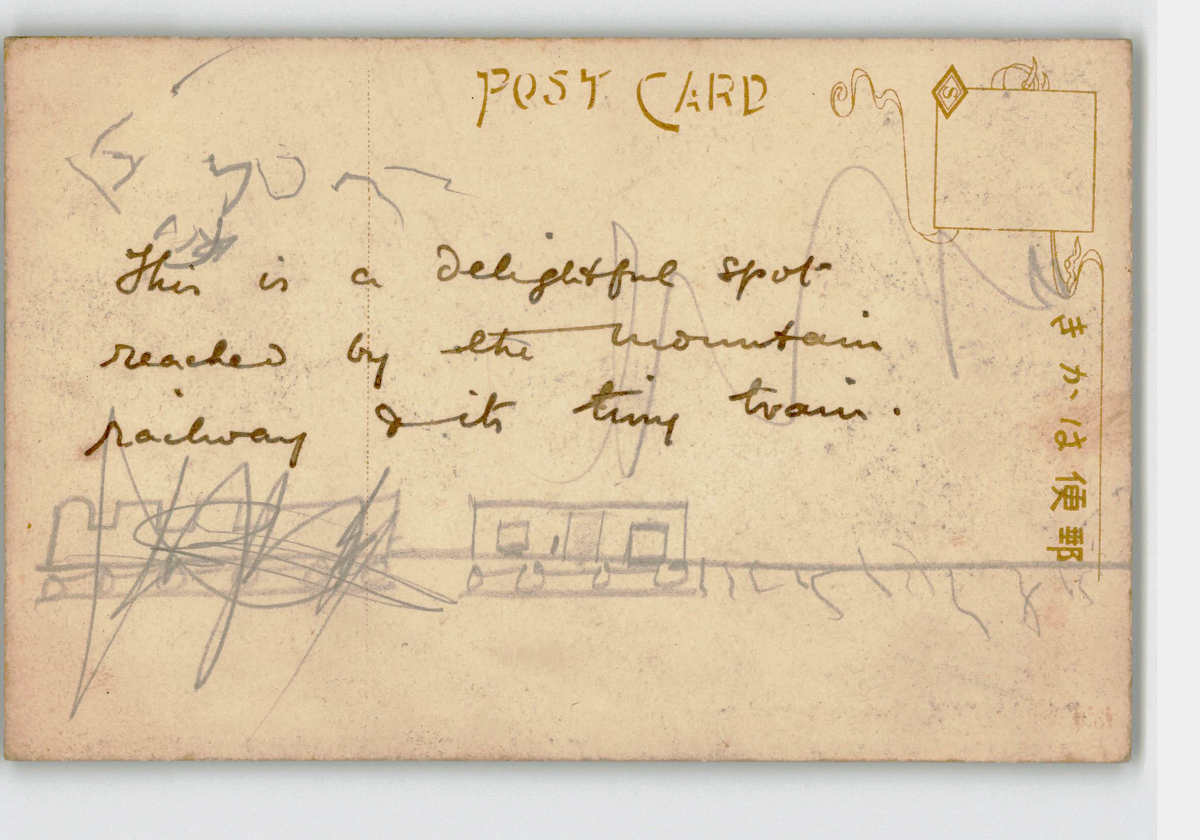 POST CARD
This is a delightful spot
reached by the mountain
railway & its tiny train.
きかは便郵